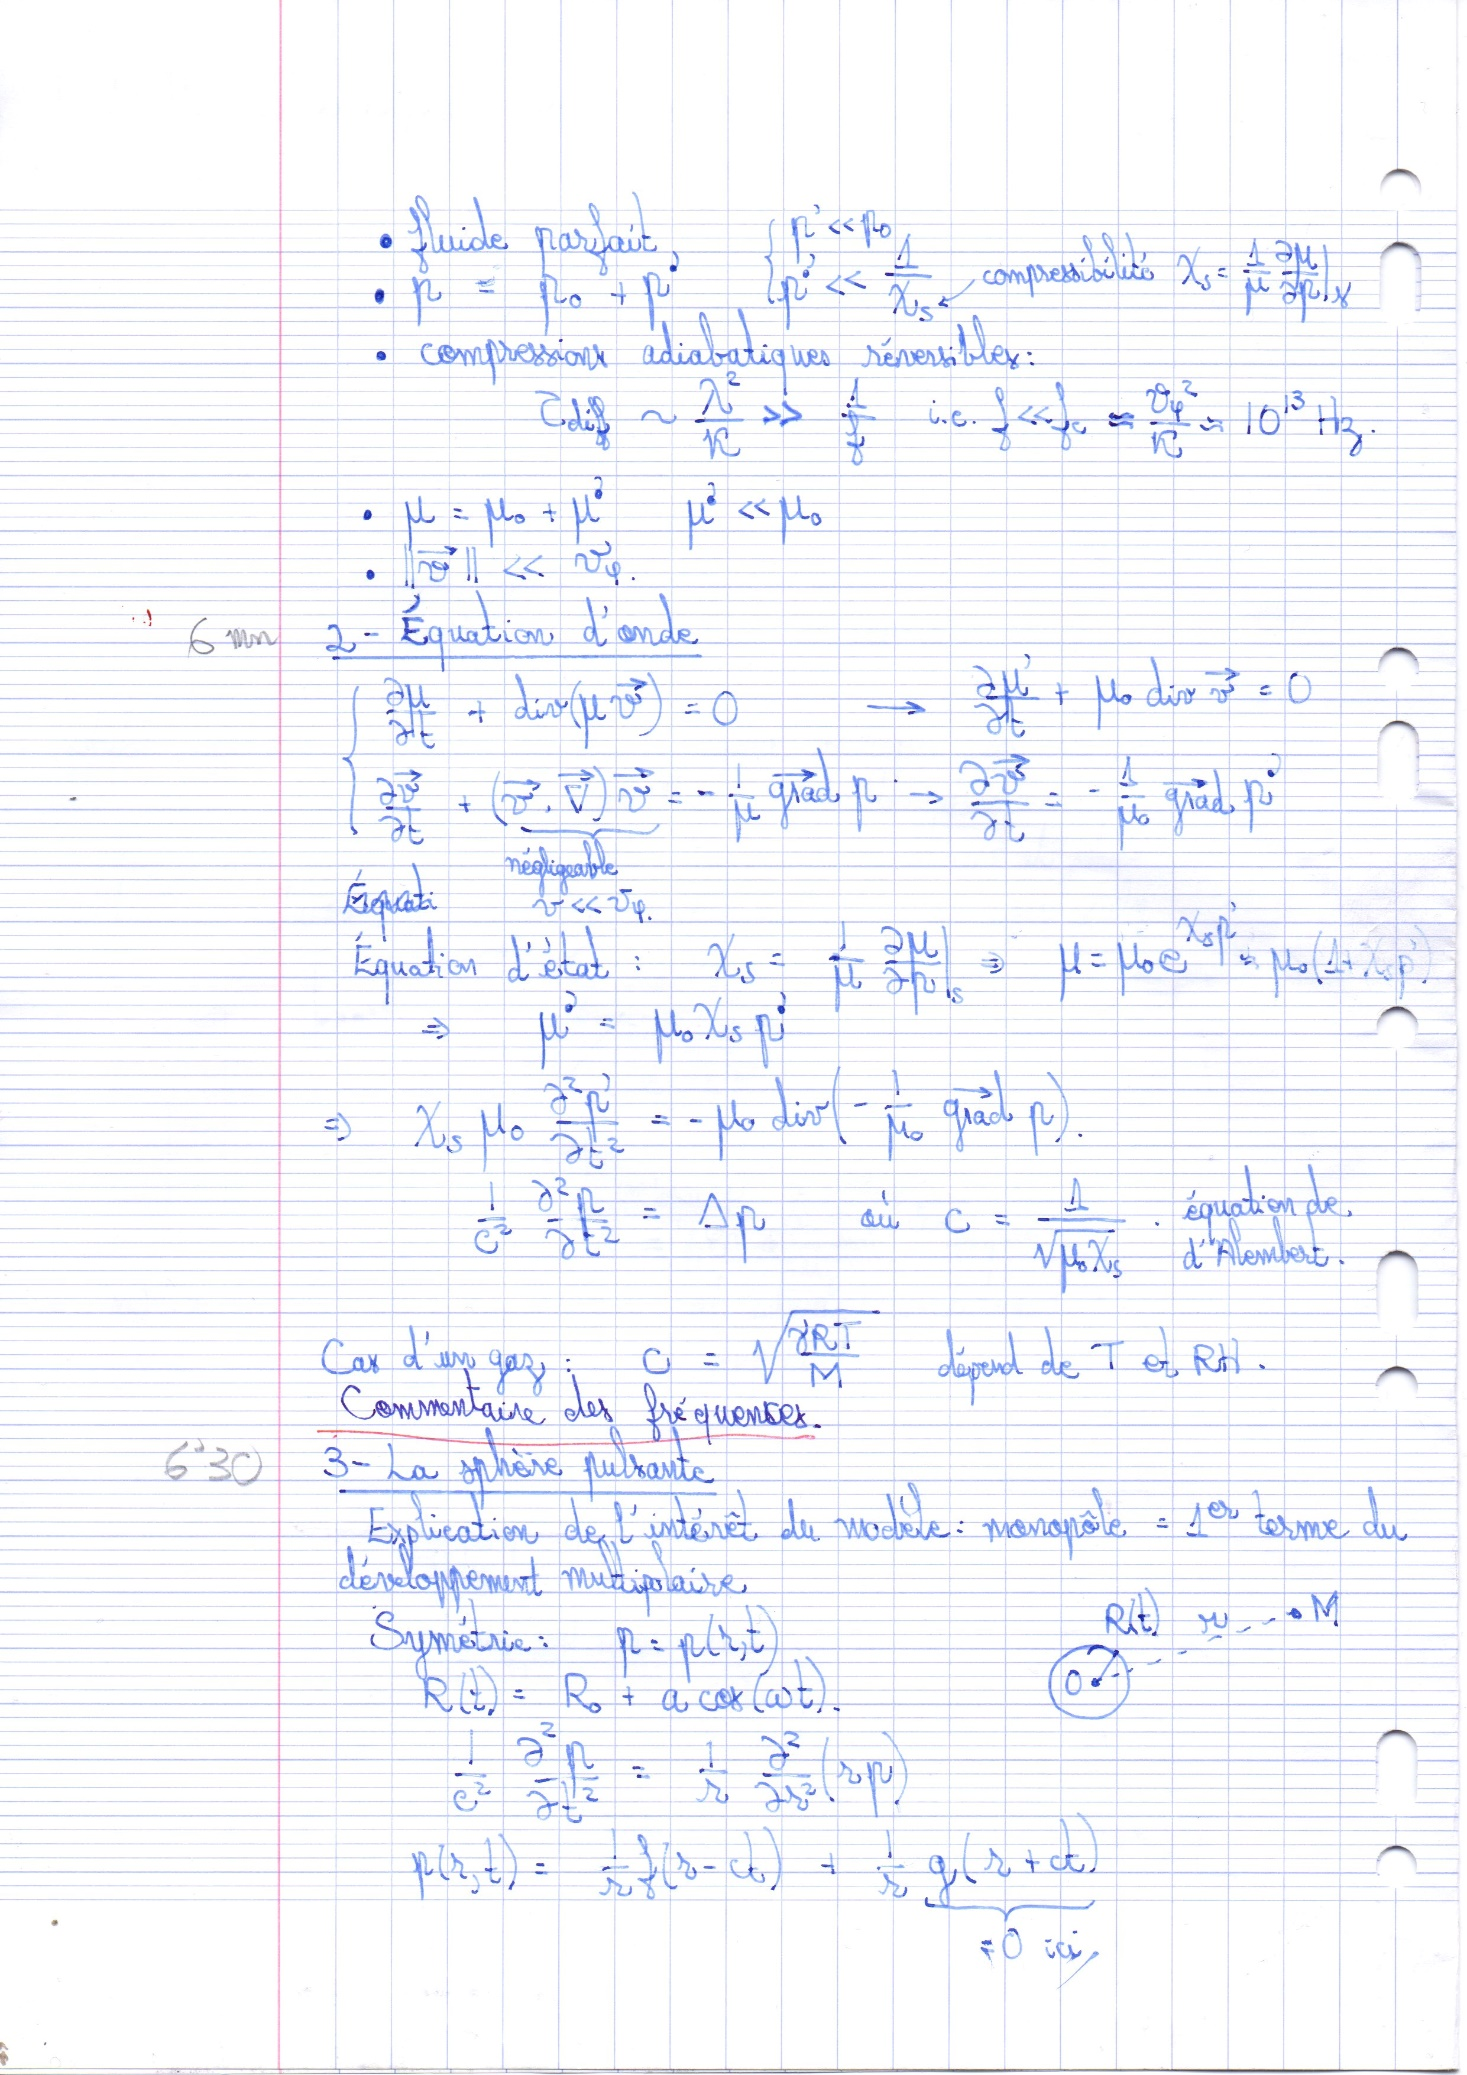 • fluide parfait, { p' << p₀
• p = p₀ + p' { p' << 1/χₛ ← compressibilité χₛ = 1/μ ∂μ/∂p|ₛ
• compressions adiabatiques réversibles :
τdiff ~ λ²/κ >> 1/f i.e. f << fc ≈ vφ²/κ ≈ 10¹³ Hz.
• μ = μ₀ + μ' μ' << μ₀
• ||v⃗|| << vφ.
6 mn 2 - Équation d'onde
{ ∂μ/∂t + div(μ v⃗) = 0 → ∂μ'/∂t + μ₀ div v⃗ = 0
{ ∂v⃗/∂t + (v⃗.∇⃗)v⃗ = - 1/μ grad⃗ p → ∂v⃗/∂t = - 1/μ₀ grad⃗ p'
négligeable
Équati v << vφ.
Équation d'état : χₛ = 1/μ ∂μ/∂p|ₛ ⇒ μ = μ₀ e^(χₛp') ≈ μ₀(1+χₛp')
⇒ μ' = μ₀ χₛ p'
⇒ χₛ μ₀ ∂²p'/∂t² = - μ₀ div(- 1/μ₀ grad⃗ p).
1/c² ∂²p/∂t² = Δp où c = 1/√(μ₀χₛ) . équation de
d'Alembert.
Cas d'un gaz : c = √(γRT/M) dépend de T et RH.
Commentaire des fréquences.
6'30 3 - La sphère pulsante
Explication de l'intérêt du modèle : monopôle = 1er terme du
développement multipolaire
Symétrie : p = p(r,t) R(t) r M
R(t) = R₀ + a cos(ωt). O
1/c² ∂²p/∂t² = 1/r ∂²/∂r² (rp)
p(r,t) = 1/r f(r-ct) + 1/r g(r+ct)
= 0 ici